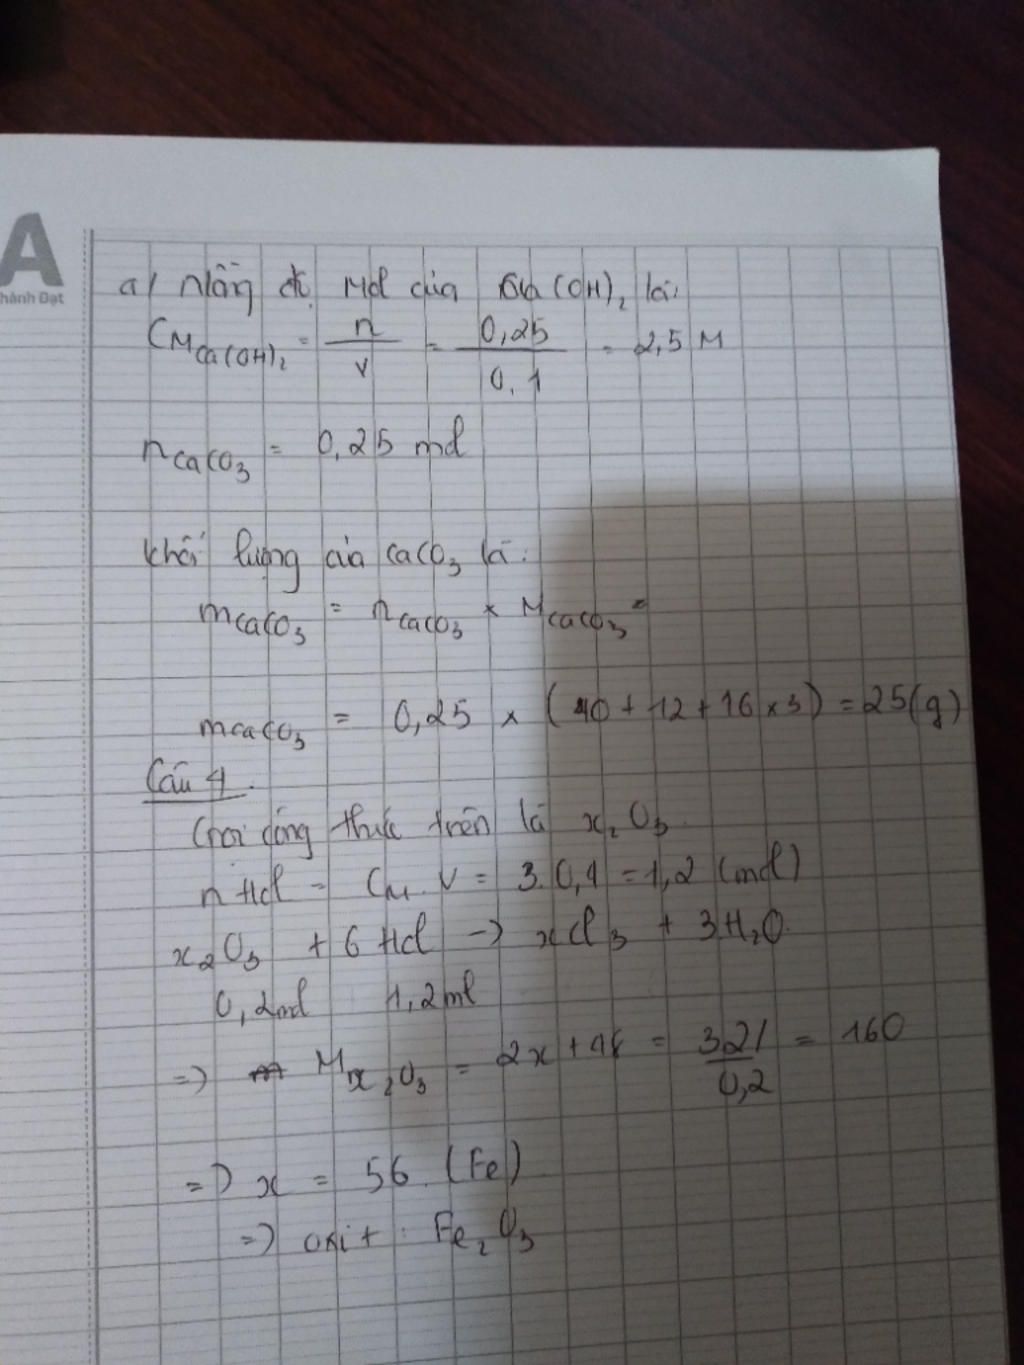 A
hành Đạt
a/ nồng độ Mol của Ca(OH)₂ là:
CM Ca(OH)₂ = n/v = 0,25/0,1 = 2,5 M
nCaCO₃ = 0,25 mol
khối lượng của CaCO₃ là:
mCaCO₃ = nCaCO₃ × MCaCO₃ =
mCaCO₃ = 0,25 × (40 + 12 + 16 × 3) = 25 (g)
Câu 4.
Gọi công thức trên là x₂O₃
nHCl = CM.V = 3.0,4 = 1,2 (mol)
x₂O₃ + 6 HCl -> xCl₃ + 3H₂O.
0,2mol 1,2ml
=> Mx₂O₃ = 2x + 48 = 32/0,2 = 160
=> x = 56 (Fe)
=> oxit : Fe₂O₃